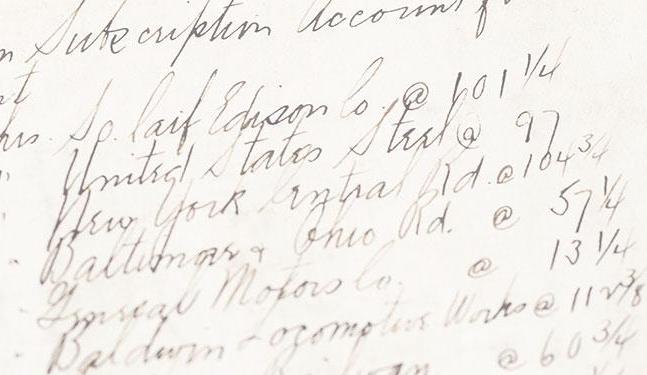 Subscription Account
So. Calif Edison Co. @ 101 1/4
United States Steel @ 97
New York Central Rd. @ 104 3/4
Baltimore & Ohio Rd. @ 57 1/4
General Motors Co. @ 13 1/4
Baldwin Locomotive Works @ 112 3/8
@ 60 3/4